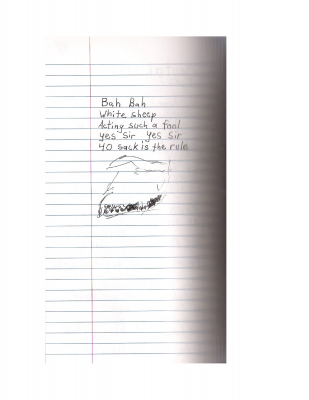 Bah Bah
White sheep
Acting such a fool
yes sir yes sir
40 sack is the rule